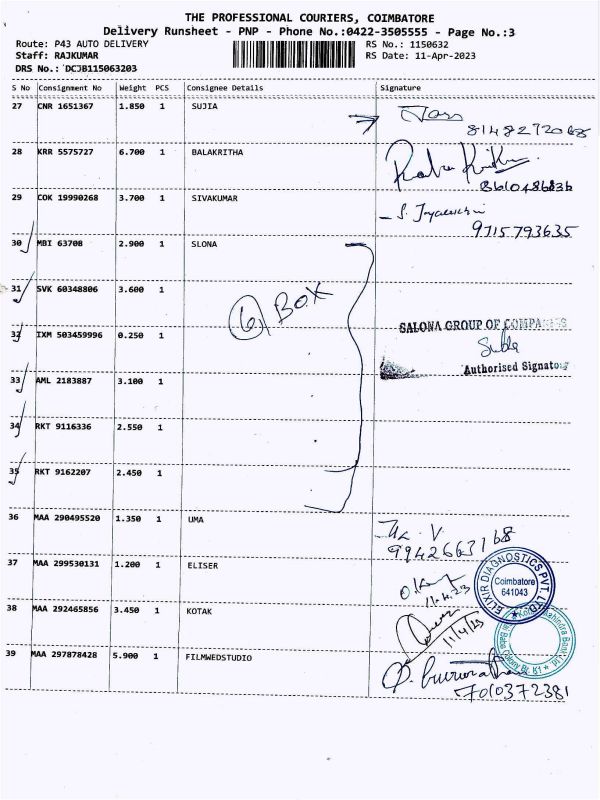 THE PROFESSIONAL COURIERS, COIMBATORE
Delivery Runsheet - PNP - Phone No.:0422-3505555 - Page No.:3
Route: P43 AUTO DELIVERY RS No.: 1150632
Staff: RAJKUMAR RS Date: 11-Apr-2023
DRS No.: DCJB115063203
S No Consignment No Weight PCS Consignee Details Signature
27 CNR 1651367 1.850 1 SUJIA
8148272068
28 KRR 5575727 6.700 1 BALAKRITHA
8610486836
29 COK 19990268 3.700 1 SIVAKUMAR
9715793635
30 MBI 63708 2.900 1 SLONA
31 SVK 60348806 3.600 1
6 BOX
32 IXM 503459996 0.250 1
SALONA GROUP OF COMPANIES
Authorised Signatory
33 AML 2183887 3.100 1
34 RKT 9116336 2.550 1
35 RKT 9162207 2.450 1
36 MAA 290495520 1.350 1 UMA
9942663168
37 MAA 299530131 1.200 1 ELISER
11.4.23
ELIXIR DIAGNOSTICS PVT. LTD
Coimbatore
641043
38 MAA 292465856 3.450 1 KOTAK
11/4/23
39 MAA 297878428 5.900 1 FILMWEDSTUDIO
7010372381